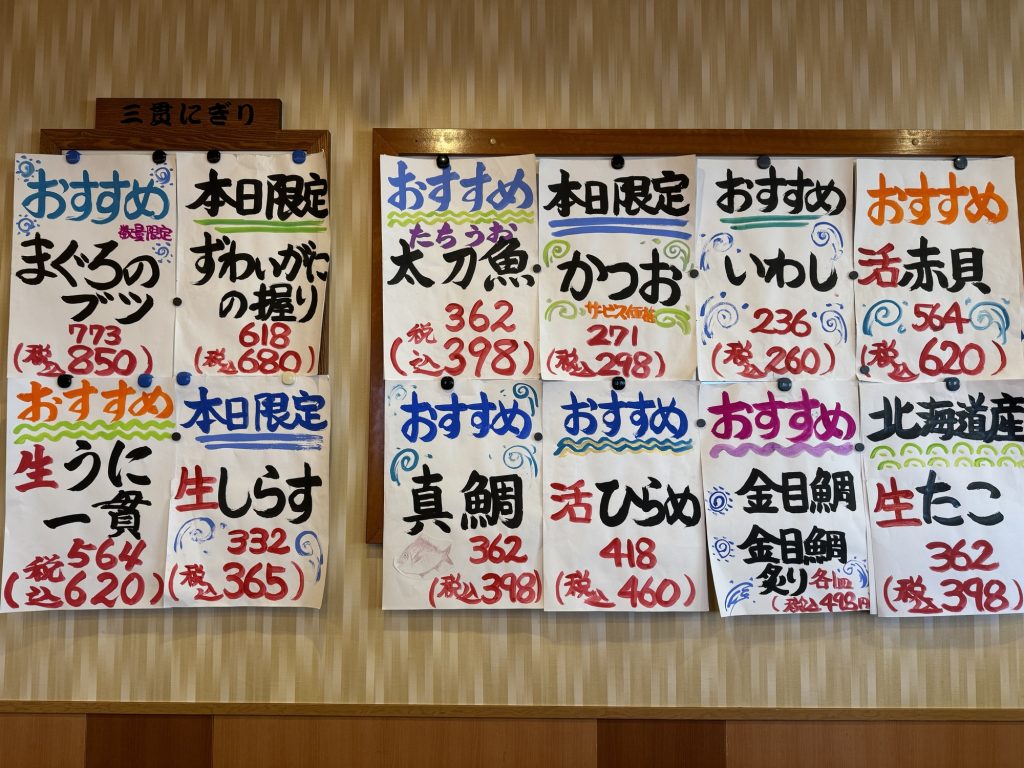 三貫にぎり
おすすめ
数量限定
まぐろの
ブツ
773
(税込850)
本日限定
ずわいがに
の握り
618
(税込680)
おすすめ
生うに
一貫
564
(税込620)
本日限定
生しらす
332
(税込365)
おすすめ
たちうお
太刀魚
362
(税込398)
本日限定
かつお
サービス価格
271
(税込298)
おすすめ
いわし
236
(税込260)
おすすめ
活赤貝
564
(税込620)
おすすめ
真鯛
362
(税込398)
おすすめ
活ひらめ
418
(税込460)
おすすめ
金目鯛
金目鯛
炙り各1皿
(税込498円
北海道産
生たこ
362
(税込398)